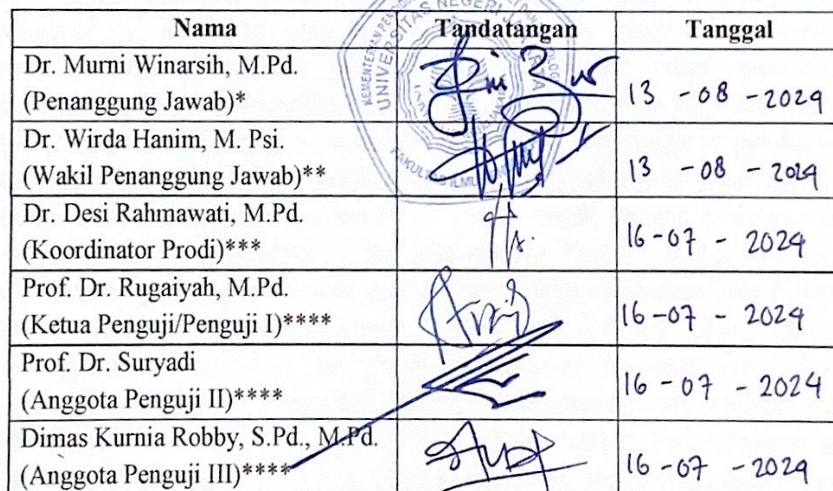 Nama Tandatangan Tanggal
Dr. Murni Winarsih, M.Pd.
(Penanggung Jawab)* 13 -08 -2024
Dr. Wirda Hanim, M. Psi.
(Wakil Penanggung Jawab)** 13 -08 - 2024
Dr. Desi Rahmawati, M.Pd.
(Koordinator Prodi)*** 16 -07 - 2024
Prof. Dr. Rugaiyah, M.Pd.
(Ketua Penguji/Penguji I)**** 16 -07 - 2024
Prof. Dr. Suryadi
(Anggota Penguji II)**** 16 - 07 - 2024
Dimas Kurnia Robby, S.Pd., M.Pd.
(Anggota Penguji III)**** 16 -07 - 2024
UNIVERSITAS NEGERI
FAKULTAS ILMU